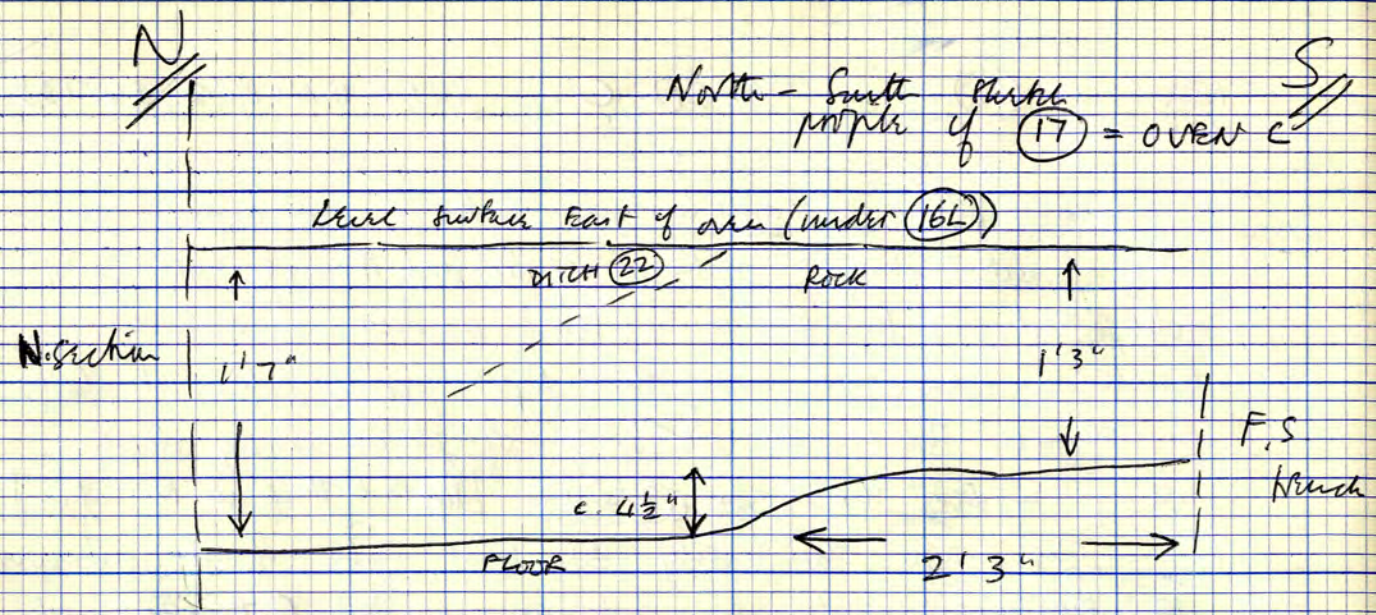 N
S
North - South sketch
profile of 17 = OVEN C
Level surface East of oven (under 16L)
DITCH 22
ROCK
N. section
1'7"
1'3"
F.S
trench
c. 4½"
FLOOR
2'3"